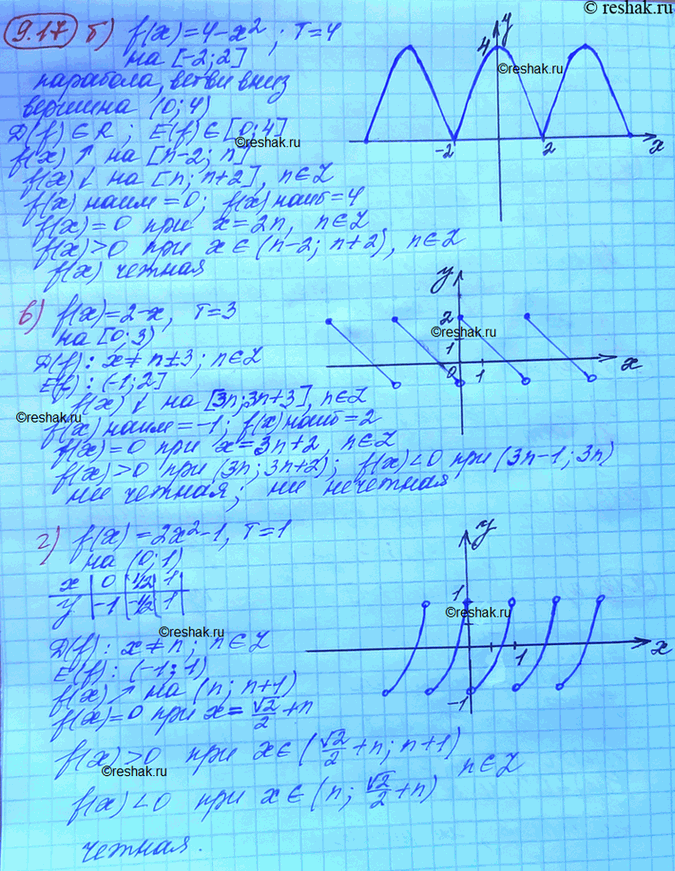 © reshak.ru
9.17 б) f(x)=4-x²; T=4
на [-2;2]
парабола, ветви вниз
вершина (0;4)
D(f)∈R; E(f)∈[0;4]
f(x)↑ на [n-2; n]
f(x)↓ на [n; n+2], n∈Z
f(x) наим=0; f(x) наиб=4
f(x)=0 при x=2n, n∈Z
f(x)>0 при x∈(n-2; n+2), n∈Z
f(x) четная
y
4
-2
2
x
©reshak.ru
©reshak.ru
в) f(x)=2-x, T=3
на [0;3)
D(f): x≠n±3; n∈Z
E(f): (-1;2]
f(x)↓ на [3n;3n+3], n∈Z
f(x) наим=-1; f(x) наиб=2
f(x)=0 при x=3n+2, n∈Z
f(x)>0 при (3n; 3n+2); f(x)<0 при (3n-1; 3n)
ни четная; ни нечетная
y
2
1
0
1
x
©reshak.ru
©reshak.ru
г) f(x)=2x²-1, T=1
на (0;1)
x | 0 | 1/2 | 1
y | -1 | -1/2 | 1
D(f): x≠n; n∈Z
E(f): (-1;1)
f(x)↗ на (n; n+1)
f(x)=0 при x=√2/2+n
f(x)>0 при x∈(√2/2+n; n+1)
n∈Z
f(x)<0 при x∈(n; √2/2+n)
четная.
y
1
1
-1
x
©reshak.ru
©reshak.ru
©reshak.ru